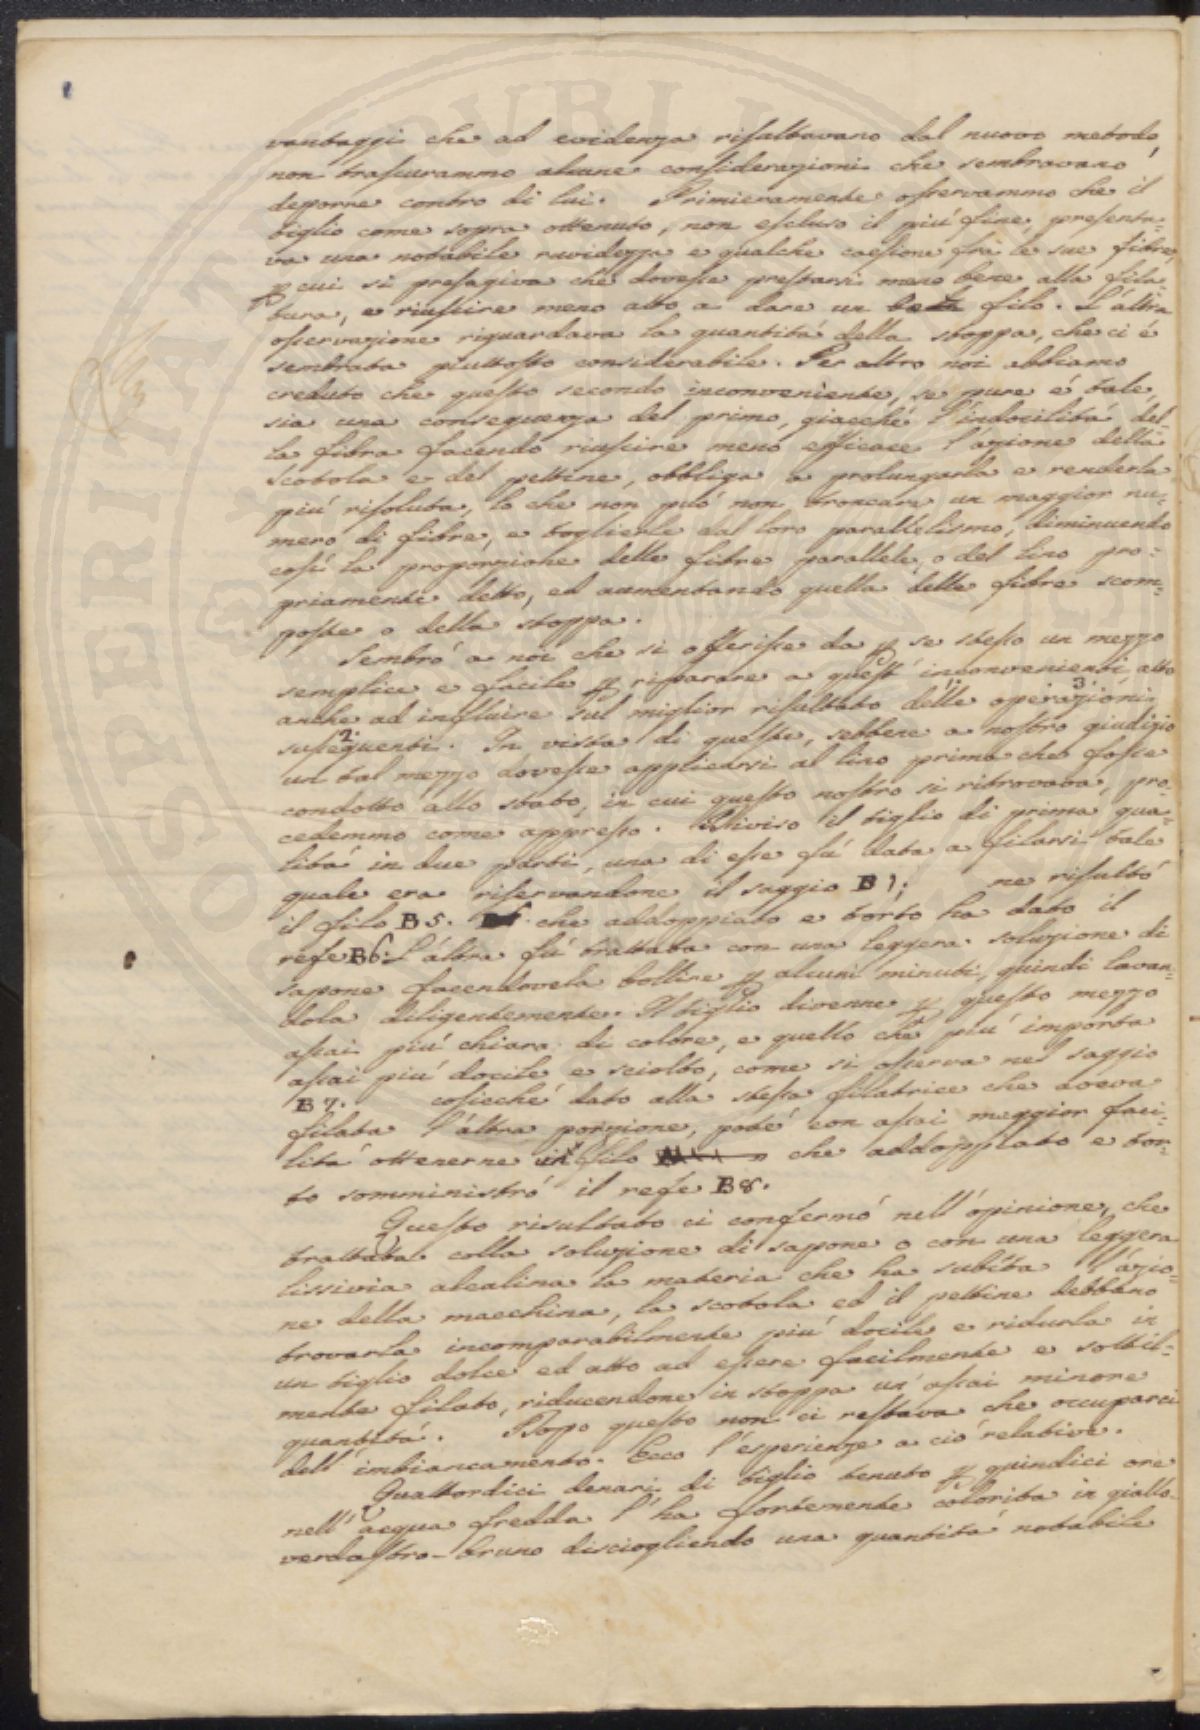 vantaggi che ad evidenza risaltavano dal nuovo metodo,
non trascurammo alcune considerazioni che sembravano
deporre contro di lui. Primieramente osservammo che il
tiglio come sopra ottenuto, non escluso il più fine, presenta-
va una notabile ruvidezza e qualche coesione fra le sue fibre,
p cui si presagiva che dovesse prestarsi meno bene alla fila-
tura, e riuscire meno atto a dare un bel filo. L'altra
osservazione riguardava la quantità della stoppa, che ci é
sembrata piuttosto considerabile. Per altro noi abbiamo
creduto che questo secondo inconveniente, se pure é tale,
sia una conseguenza del primo, giacché l'indocilità del-
la fibra facendo riuscire meno efficace l'azione della
scotola e del pettine, obbliga a prolungarla e renderla
più risoluta, lo che non puó non troncare un maggior nu-
mero di fibre, e toglierle dal loro parallelismo, diminuendo
così la proporzione delle fibre parallele, o del lino pro-
priamente detto, ed aumentando quella delle fibre scom-
poste o della stoppa.
Sembró a noi che si offerisse da p se stesso un mezzo
semplice e facile p riparare a quest'inconvenienti, atto
anche ad influire sul miglior risultato delle operazioni
susseguenti. In vista di queste, sebbene a nostro giudizio
un tal mezzo dovesse applicarsi al lino prima che fosse
condotto allo stato, in cui questo nostro si ritrovava, pro-
cedemmo come appresso. Diviso il tiglio di prima qua-
lità in due parti, una di esse fú data a filarsi tale
quale era riservandone il saggio B1; ne risultó
il filo B5. che addoppiato e torto ha dato il
refe B6. L'altra fú trattata con una leggera soluzione di
sapone facendovela bollire p alcuni minuti, quindi lavan-
dola diligentemente. Il tiglio divenne p questo mezzo
assai più chiara di colore, e quello che più importa
assai più docile e sciolto, come si osserva nel saggio
B7. cosicché dato alla stessa filatrice che aveva
filata l'altra porzione, poté con assai maggior faci-
lità ottenerne un filo che addoppiato e tor-
to somministró il refe B8.
Questo risultato ci confermó nell'opinione, che
trattata colla soluzione di sapone o con una leggera
lissivia alcalina la materia che ha subita l'azio-
ne della macchina, la scotola ed il pettine debbano
trovarla incomparabilmente più docile e ridurla in
un tiglio dolce ed atto ad essere facilmente e sottil-
mente filato, riducendone in stoppa un'assai minore
quantità. Dopo questo non ci restava che occuparci
dell'imbiancamento. Ecco l'esperienze a ció relative.
Quattordici denari di tiglio tenuto p quindici ore
nell'acqua fredda l'ha fortemente colorita in giallo-
verdastro-bruno disciogliendo una quantità notabile